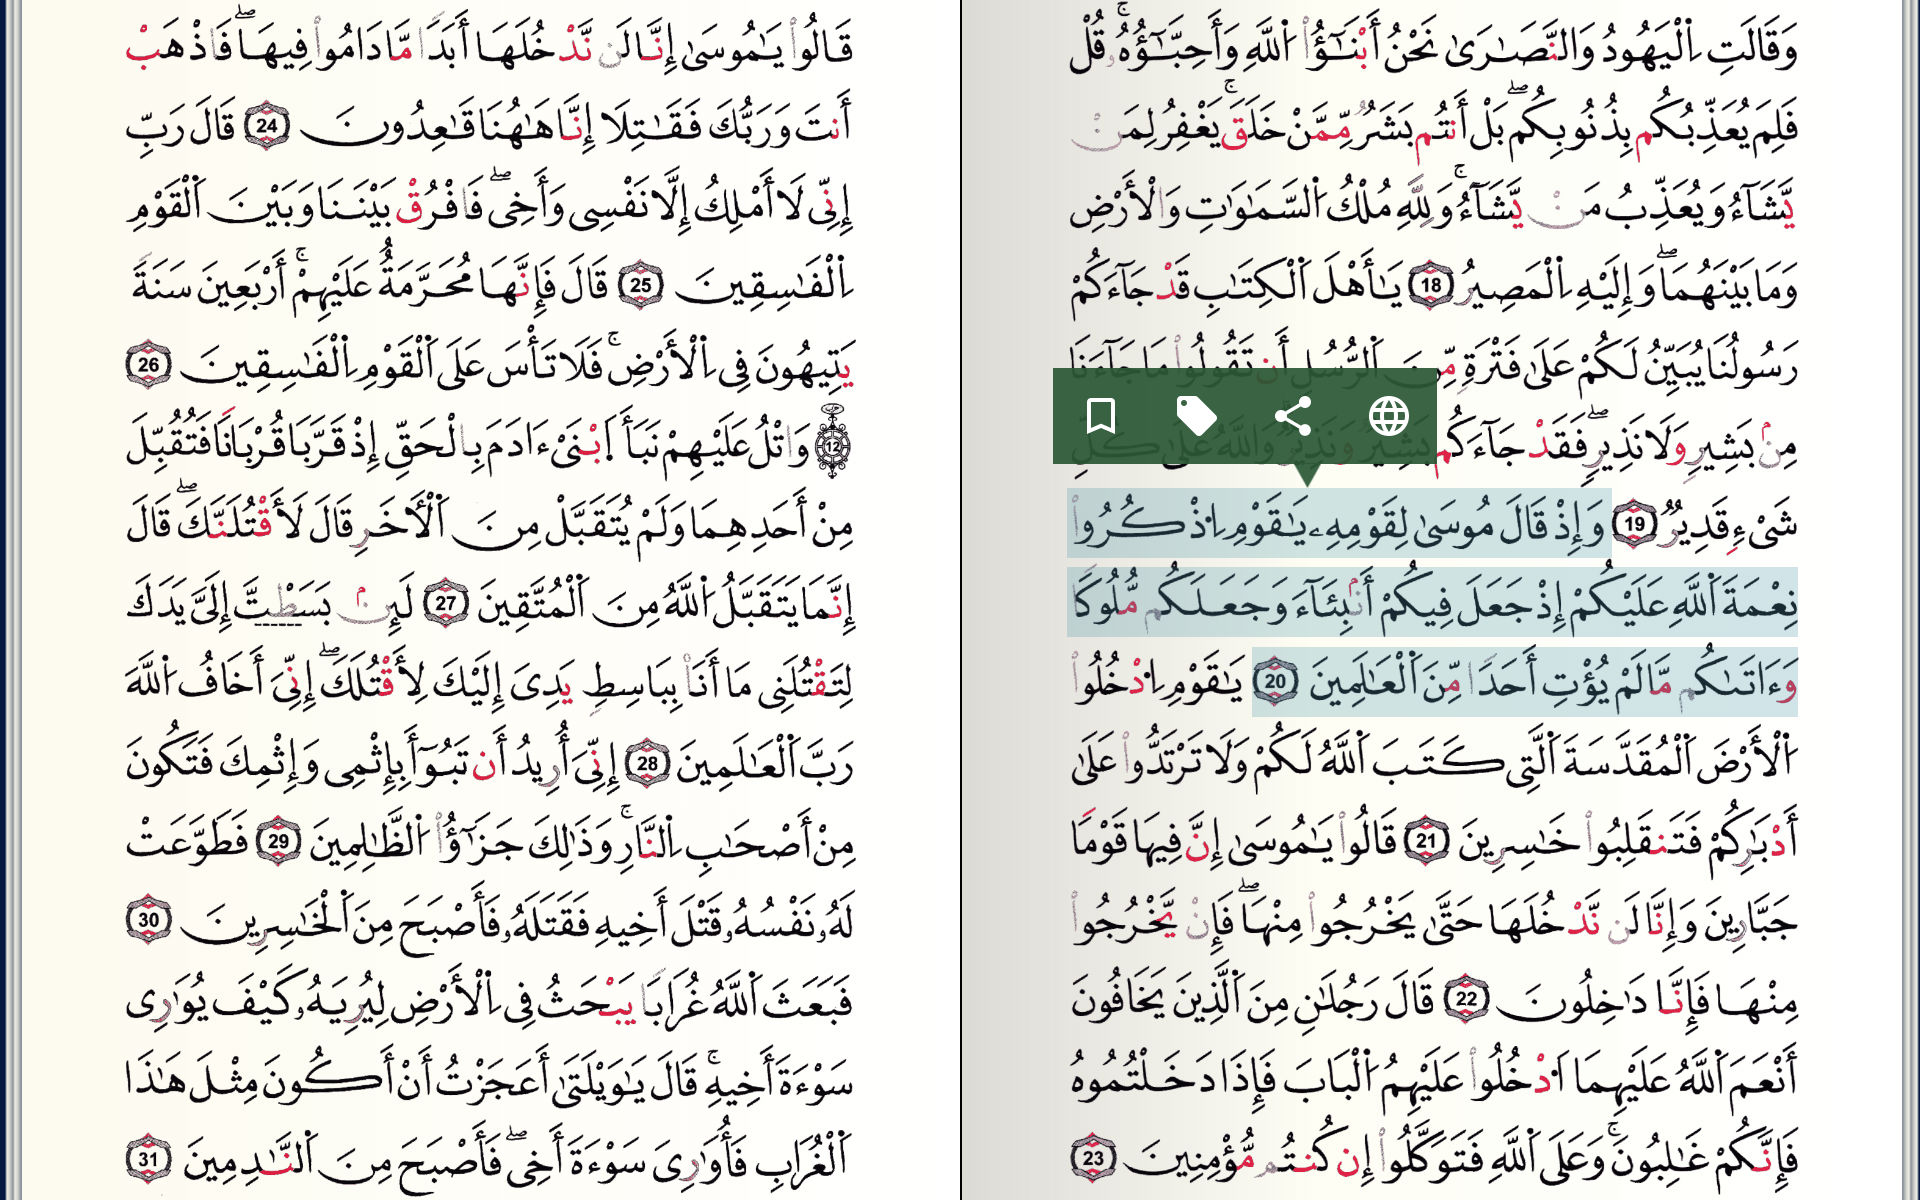 وَقَالَتِ اِ۬لْيَهُودُ وَالنَّصَٰر۪ىٰ نَحْنُ أَبْنَٰٓؤُاْ اُ۬للَّهِ وَأَحِبَّٰٓؤُهُۥۚ قُلْ
فَلِمَ يُعَذِّبُكُم بِذُنُوبِكُمۖ بَلْ أَنتُم بَشَرٞ مِّمَّنْ خَلَقَۚ يَغْفِرُ لِمَنْ
يَّشَآءُ وَيُعَذِّبُ مَنْ يَّشَآءُۚ وَلِلَّهِ مُلْكُ اُ۬لسَّمَٰوَٰتِ وَالْأَرْضِ
وَمَا بَيْنَهُمَاۖ وَإِلَيْهِ اِ۬لْمَصِيرُ 18 يَٰٓأَهْلَ اَ۬لْكِتَٰبِ قَدْ جَآءَكُمْ
رَسُولُنَا يُبَيِّنُ لَكُمْ عَلَىٰ فَتْرَةٖ مِّنَ اَ۬لرُّسُلِ أَن تَقُولُواْ مَا جَآءَنَا
مِنۢ بَشِيرٖ وَلَا نَذِيرٖۖ فَقَدْ جَآءَكُم بَشِيرٞ وَنَذِيرٞ وَاللَّهُ عَلَىٰ كُلِّ
شَيْءٖ قَدِيرٞ 19 وَإِذْ قَالَ مُوسَىٰ لِقَوْمِهِۦ يَٰقَوْمِ اِ۟ذْكُرُواْ
نِعْمَةَ اَ۬للَّهِ عَلَيْكُمْ إِذْ جَعَلَ فِيكُمْ أَنۢبِئَآءَ وَجَعَلَكُم مُّلُوكٗا
وَءَاتَىٰكُم مَّا لَمْ يُؤْتِ أَحَدٗا مِّنَ اَ۬لْعَٰلَمِينَ 20 يَٰقَوْمِ اِ۟دْخُلُواْ
اُ۬لْأَرْضَ اَ۬لْمُقَدَّسَةَ اَ۬لَّتِي كَتَبَ اَ۬للَّهُ لَكُمْ وَلَا تَرْتَدُّواْ عَلَىٰ
أَدْبَٰرِكُمْ فَتَنقَلِبُواْ خَٰسِرِينَ 21 قَالُواْ يَٰمُوسَىٰ إِنَّ فِيهَا قَوْمٗا
جَبَّارِينَ وَإِنَّا لَن نَّدْخُلَهَا حَتَّىٰ يَخْرُجُواْ مِنْهَاۖ فَإِنْ يَّخْرُجُواْ
مِنْهَا فَإِنَّا دَٰخِلُونَ 22 قَالَ رَجُلَٰنِ مِنَ اَ۬لَّذِينَ يَخَافُونَ
أَنْعَمَ اَ۬للَّهُ عَلَيْهِمَا اَ۟دْخُلُواْ عَلَيْهِمُ اُ۬لْبَابَ فَإِذَا دَخَلْتُمُوهُ
فَإِنَّكُمْ غَٰلِبُونَۚ وَعَلَى اَ۬للَّهِ فَتَوَكَّلُواْ إِن كُنتُم مُّؤْمِنِينَ 23
قَالُواْ يَٰمُوسَىٰ إِنَّا لَن نَّدْخُلَهَا أَبَدٗا مَّا دَامُواْ فِيهَاۖ فَاذْهَبْ
أَنتَ وَرَبُّكَ فَقَٰتِلَا إِنَّا هَٰهُنَا قَٰعِدُونَ 24 قَالَ رَبِّ
إِنِّي لَا أَمْلِكُ إِلَّا نَفْسِي وَأَخِيۖ فَافْرُقْ بَيْنَنَا وَبَيْنَ اَ۬لْقَوْمِ
اِ۬لْفَٰسِقِينَ 25 قَالَ فَإِنَّهَا مُحَرَّمَةٌ عَلَيْهِمْۚ أَرْبَعِينَ سَنَةٗ
يَتِيهُونَ فِي اِ۬لْأَرْضِۚ فَلَا تَأْسَ عَلَى اَ۬لْقَوْمِ اِ۬لْفَٰسِقِينَ 26
12 وَاتْلُ عَلَيْهِمْ نَبَأَ اَ۪بْنَيْ ءَادَمَ بِالْحَقِّ إِذْ قَرَّبَا قُرْبَانٗا فَتُقُبِّلَ
مِنْ أَحَدِهِمَا وَلَمْ يُتَقَبَّلْ مِنَ اَ۬لْأٓخَرِ قَالَ لَأَقْتُلَنَّكَۖ قَالَ
إِنَّمَا يَتَقَبَّلُ اُ۬للَّهُ مِنَ اَ۬لْمُتَّقِينَ 27 لَئِنۢ بَسَطْتَّ إِلَيَّ يَدَكَ
لِتَقْتُلَنِي مَا أَنَا۠ بِبَاسِطٖ يَدِيَ إِلَيْكَ لِأَقْتُلَكَۖ إِنِّيَ أَخَافُ اُ۬للَّهَ
رَبَّ اَ۬لْعَٰلَمِينَ 28 إِنِّيَ أُرِيدُ أَن تَبُوٓأَ بِإِثْمِي وَإِثْمِكَ فَتَكُونَ
مِنْ أَصْحَٰبِ اِ۬لنَّارِۚ وَذَٰلِكَ جَزَٰٓؤُاْ اُ۬لظَّٰلِمِينَ 29 فَطَوَّعَتْ
لَهُۥ نَفْسُهُۥ قَتْلَ أَخِيهِ فَقَتَلَهُۥ فَأَصْبَحَ مِنَ اَ۬لْخَٰسِرِينَ 30
فَبَعَثَ اَ۬للَّهُ غُرَابٗا يَبْحَثُ فِي اِ۬لْأَرْضِ لِيُرِيَهُۥ كَيْفَ يُوَٰرِي
سَوْءَةَ أَخِيهِۚ قَالَ يَٰوَيْلَتَىٰ أَعَجَزْتُ أَنْ أَكُونَ مِثْلَ هَٰذَا
اَ۬لْغُرَابِ فَأُوَٰرِيَ سَوْءَةَ أَخِيۖ فَأَصْبَحَ مِنَ اَ۬لنَّٰدِمِينَ 31